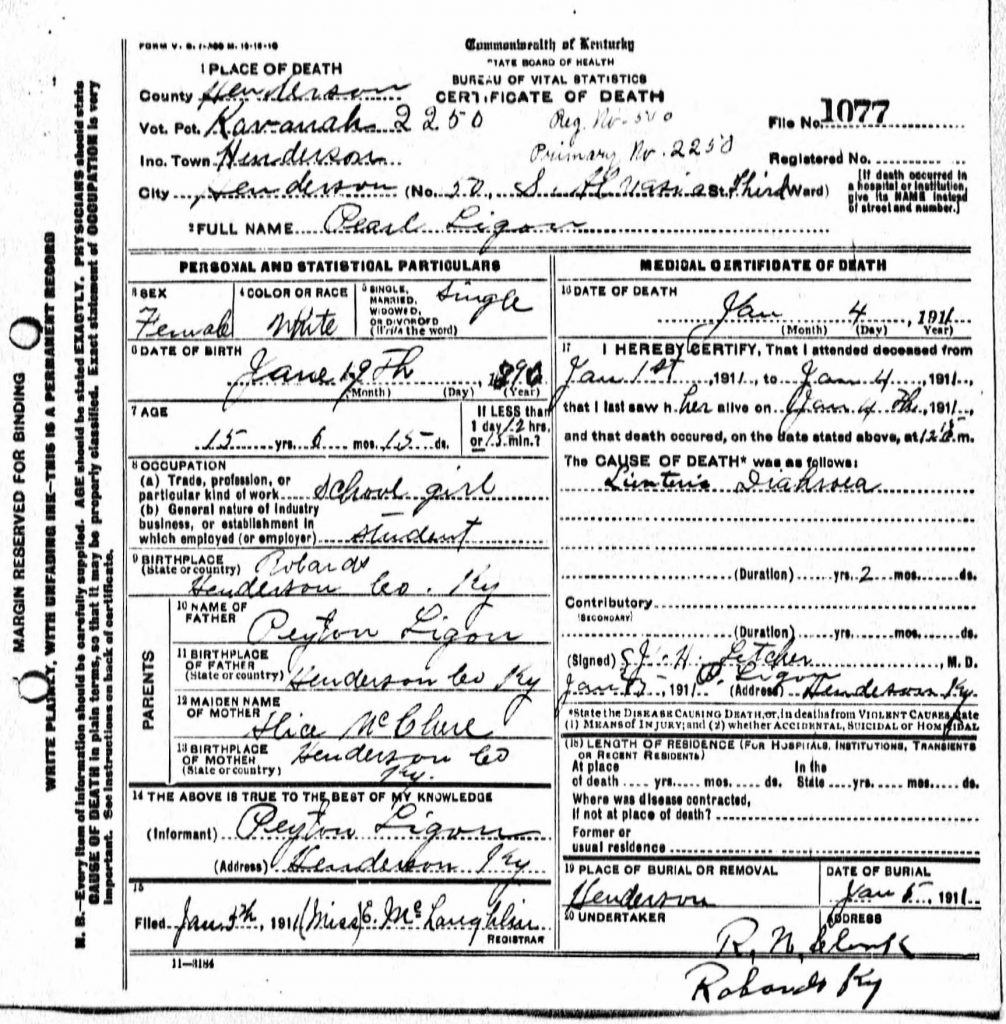 FORM V. S. 1-A
Commonwealth of Kentucky
STATE BOARD OF HEALTH
BUREAU OF VITAL STATISTICS
CERTIFICATE OF DEATH
1 PLACE OF DEATH
County Henderson
Vot. Pct. Kavanah 2250
Reg. No. 500
File No. 1077
Inc. Town Henderson
Primary No. 2250
Registered No.
City Henderson (No. 50, S. St. Third Ward)
[If death occurred in a hospital or institution, give its NAME instead of street and number.]
2 FULL NAME Pearl Ligon
PERSONAL AND STATISTICAL PARTICULARS
3 SEX
Female
4 COLOR OR RACE
White
5 SINGLE, MARRIED, WIDOWED, OR DIVORCED (Write the word)
Single
6 DATE OF BIRTH
19Th, 1890
(Month) (Day) (Year)
7 AGE
15 yrs. 6 mos. 15 ds.
If LESS than 1 day 12 hrs. or 15 min.?
8 OCCUPATION
(a) Trade, profession, or particular kind of work school girl
(b) General nature of industry business, or establishment in which employed (or employer) student
9 BIRTHPLACE
(State or country)
Robards
Henderson Co. Ky
PARENTS
10 NAME OF FATHER
Peyton Ligon
11 BIRTHPLACE OF FATHER
(State or country)
Henderson Co Ky
12 MAIDEN NAME OF MOTHER
Alice McClure
13 BIRTHPLACE OF MOTHER
(State or country)
Henderson Co
Ky.
14 THE ABOVE IS TRUE TO THE BEST OF MY KNOWLEDGE
(Informant) Peyton Ligon
(Address) Henderson Ky
15
Filed Jan 5th, 1911 (Miss) E. McLaughlin
REGISTRAR
11-3184
MEDICAL CERTIFICATE OF DEATH
16 DATE OF DEATH
Jan 4, 1911
(Month) (Day) (Year)
17 I HEREBY CERTIFY, That I attended deceased from
Jan 1st, 1911, to Jan 4, 1911,
that I last saw her alive on Jan 4 Th, 1911,
and that death occured, on the date stated above, at 12 15 m.
The CAUSE OF DEATH* was as follows:
Diahroea
(Duration) yrs. 2 mos. ds.
Contributory
(SECONDARY)
(Duration) yrs. mos. ds.
(Signed) J. H. Letcher, M. D.
P. Ligon
Jan 5, 1911 (Address) Henderson Ky.
*State the DISEASE CAUSING DEATH, or, in deaths from VIOLENT CAUSES, state
(1) MEANS OF INJURY; and (2) whether ACCIDENTAL, SUICIDAL or HOMICIDAL
(18) LENGTH OF RESIDENCE (FOR HOSPITALS, INSTITUTIONS, TRANSIENTS
OR RECENT RESIDENTS)
At place of death yrs. mos. ds. In the State yrs. mos. ds.
Where was disease contracted,
If not at place of death?
Former or
usual residence
19 PLACE OF BURIAL OR REMOVAL
Henderson
DATE OF BURIAL
Jan 5, 1911
20 UNDERTAKER
ADDRESS
R. N.
Robards Ky
MARGIN RESERVED FOR BINDING
WRITE PLAINLY, WITH UNFADING INK—THIS IS A PERMANENT RECORD
N. B.—Every item of information should be carefully supplied. AGE should be stated EXACTLY. PHYSICIANS should state
CAUSE OF DEATH in plain terms, so that it may be properly classified. Exact statement of OCCUPATION is very
important. See instructions on back of certificate.